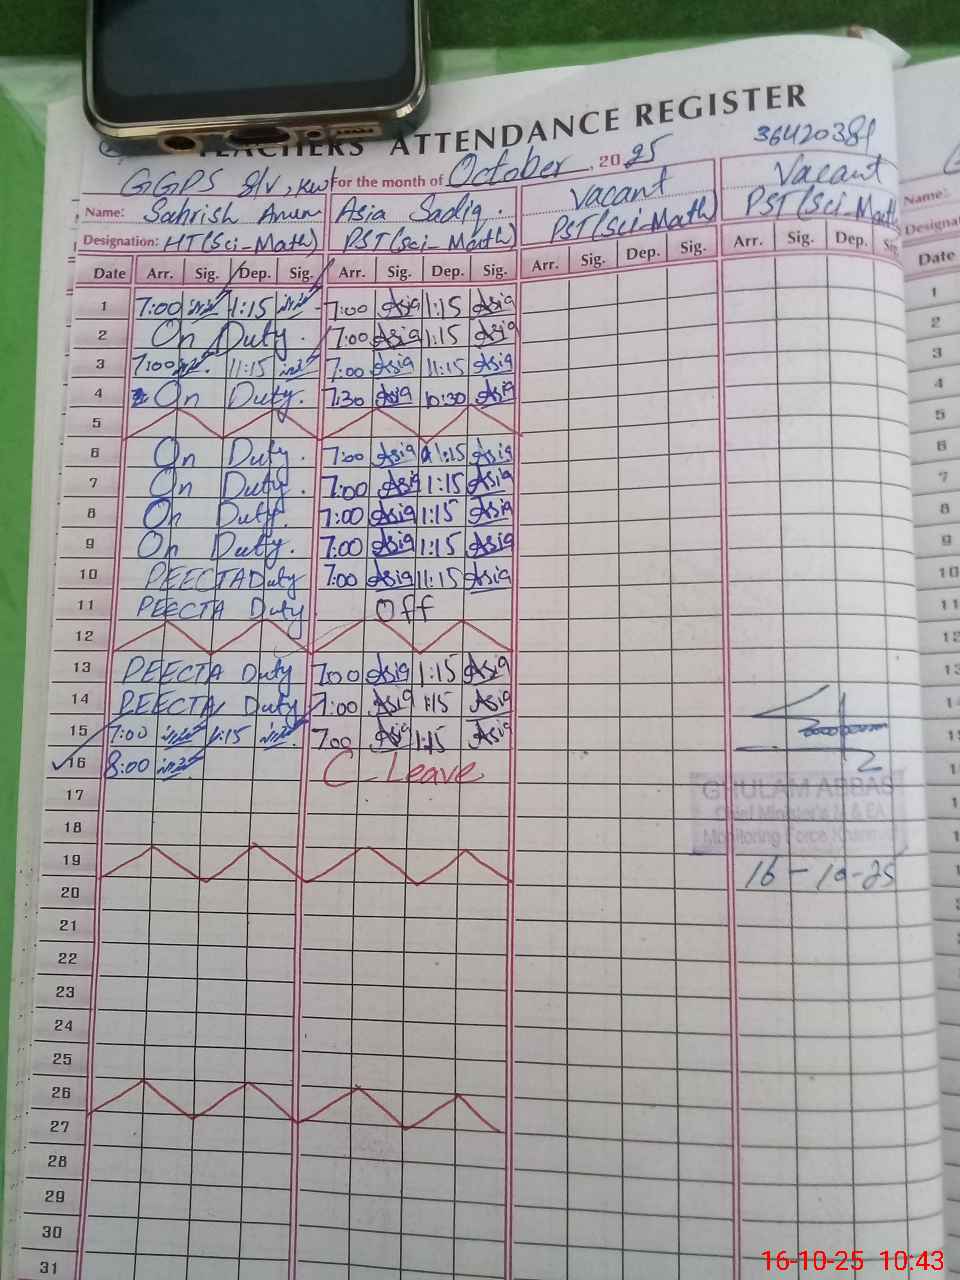 TEACHERS ATTENDANCE REGISTER
36420381
GGPS 8/V, Kwl For the month of October, 2025
Name: Sahrish Anum Asia Sadiq. Vacant Vacant
Designation: HT(Sci-Math) PST(Sci-Math) PST(Sci-Math) PST(Sci-Math)
Date Arr. Sig. Dep. Sig. Arr. Sig. Dep. Sig. Arr. Sig. Dep. Sig. Arr. Sig. Dep. Sig.
1 7:00 1:15 7:00 Asia 1:15 Asia
2 On Duty. 7:00 Asia 1:15 Asia
3 7:00 11:15 7:00 Asia 11:15 Asia
4 On Duty. 7:30 Asia 10:30 Asia
5
6 On Duty. 7:00 Asia 1:15 Asia
7 On Duty. 7:00 Asia 1:15 Asia
8 On Duty. 7:00 Asia 1:15 Asia
9 On Duty. 7:00 Asia 1:15 Asia
10 PEECTA Duty 7:00 Asia 11:15 Asia
11 PEECTA Duty Off
12
13 PEECTA Duty 7:00 Asia 1:15 Asia
14 PEECTA Duty 7:00 Asia 1:15 Asia
15 7:00 1:15 7:00 Asia 1:15 Asia
16 8:00 C-Leave
17
18
19
20
21
22
23
24
25
26
27
28
29
30
31
GHULAM ABBAS
Chief Minister's M & EA
Monitoring Force
16-10-25
Name:
Designa
Date
1
2
3
4
5
6
7
8
9
10
11
12
13
16-10-25 10:43